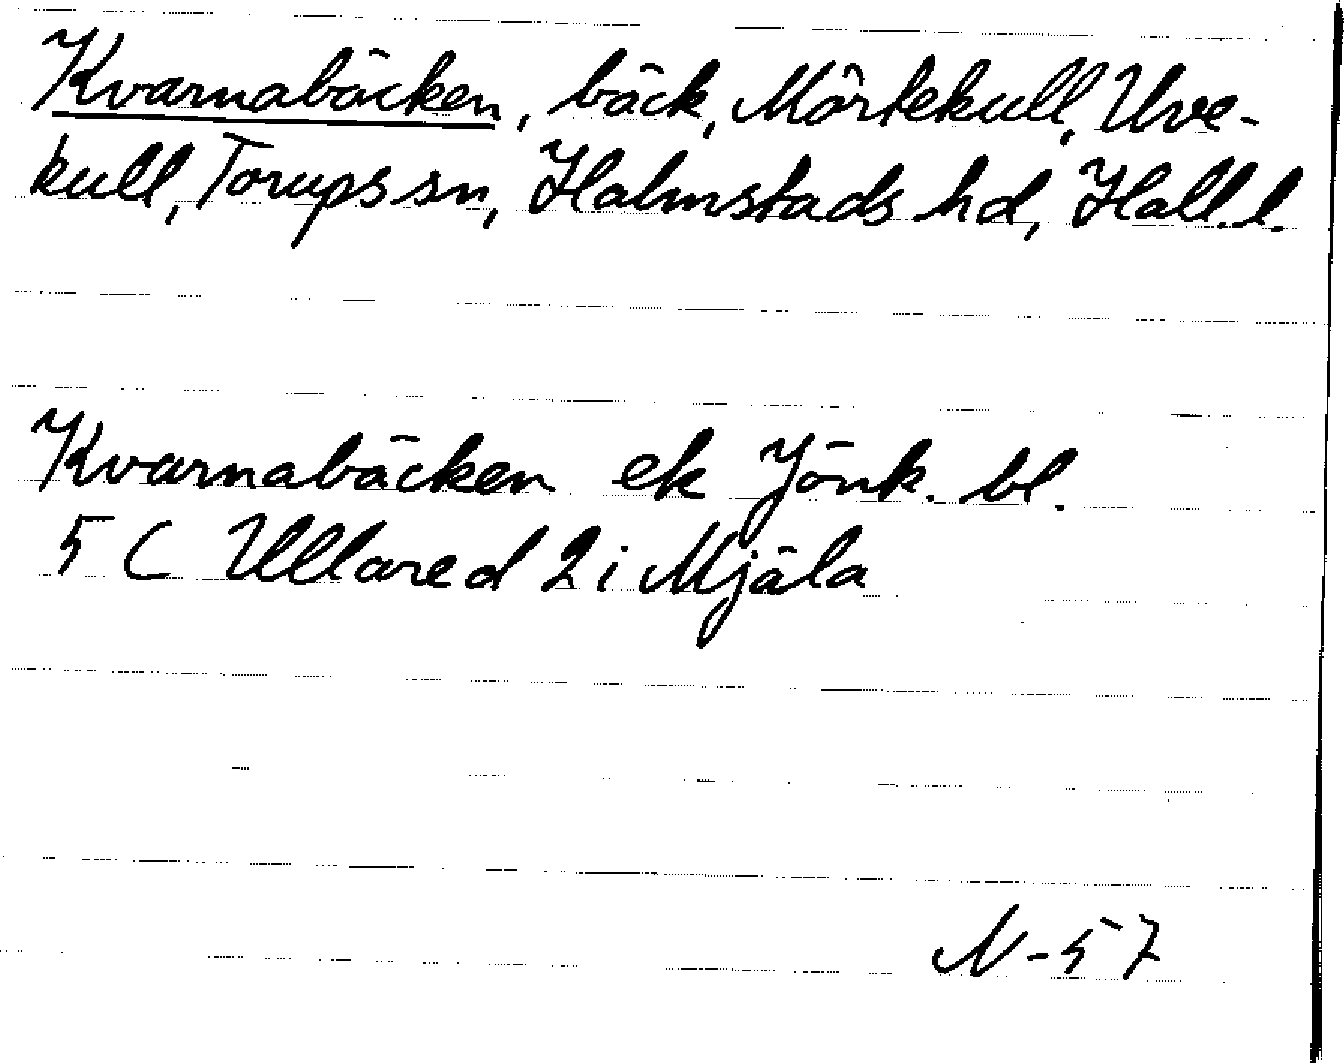 Kvarnabäcken, bäck, Mörtekull, Uve-
kull, Torups sn, Halmstads hd, Hall.l.
Kvarnabäcken ek Jönk. bl.
5 C Ullared 2 i Mjäla
N-57